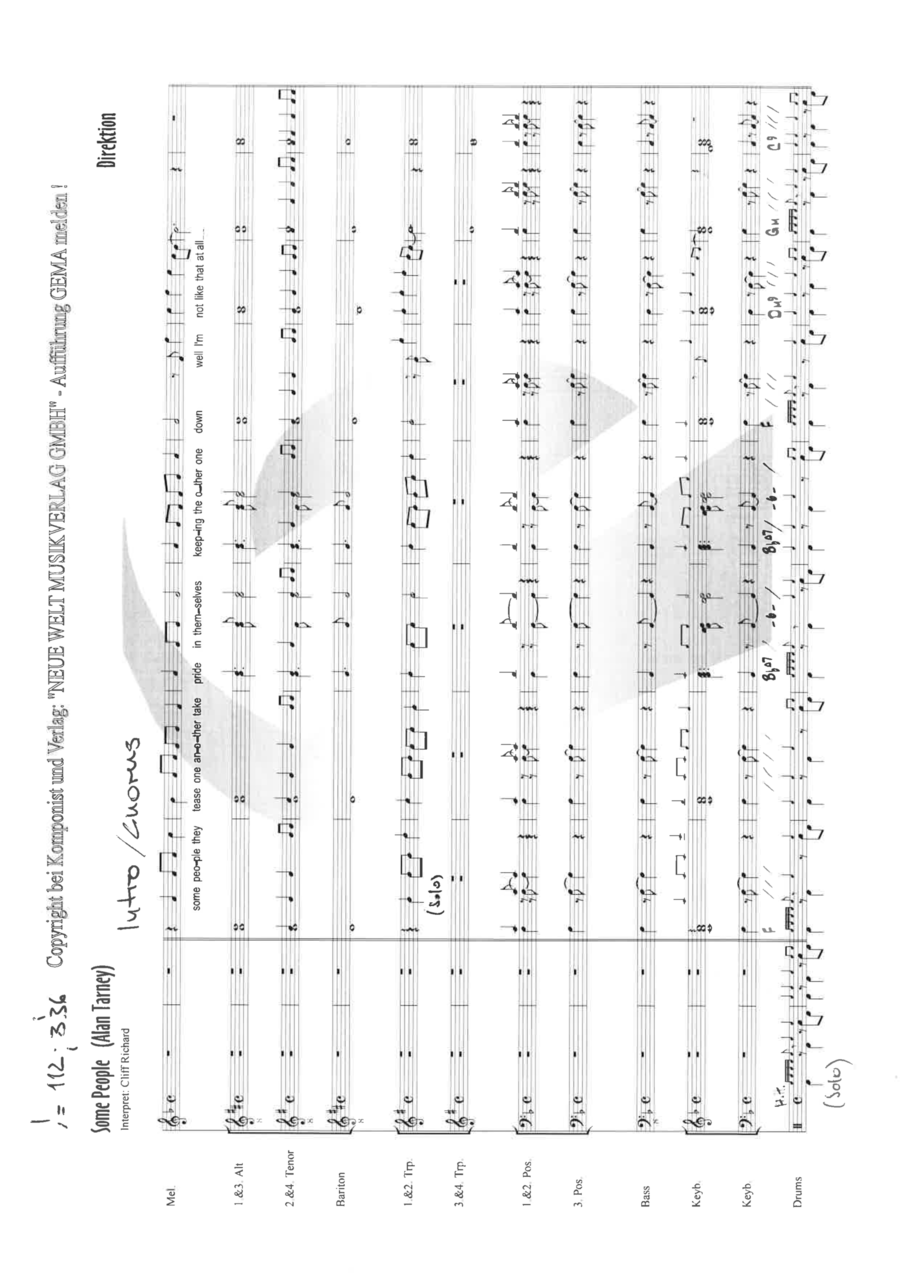 ♩ = 112 ; 3.36 Copyright bei Komponist und Verlag: "NEUE WELT MUSIKVERLAG GMBH" - Aufführung GEMA melden !
Some People (Alan Tarney)
Direktion
Interpret: Cliff Richard
Intro / Chorus
Mel.
some peo-ple they tease one an-o-ther take pride in them-selves keep-ing the o-ther one down well I'm not like that at all
1.&3. Alt
2.&4. Tenor
Bariton
1.&2. Trp.
(Solo)
3.&4. Trp.
1.&2. Pos.
3. Pos.
Bass
Keyb.
Keyb.
F Bb07 Bb07 F Gm C9
Drums
(Solo)